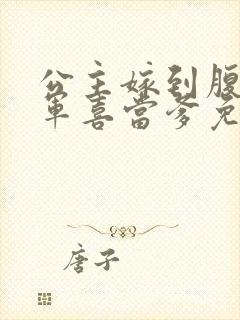 公主嫁到腹
军喜当爹免
唐子